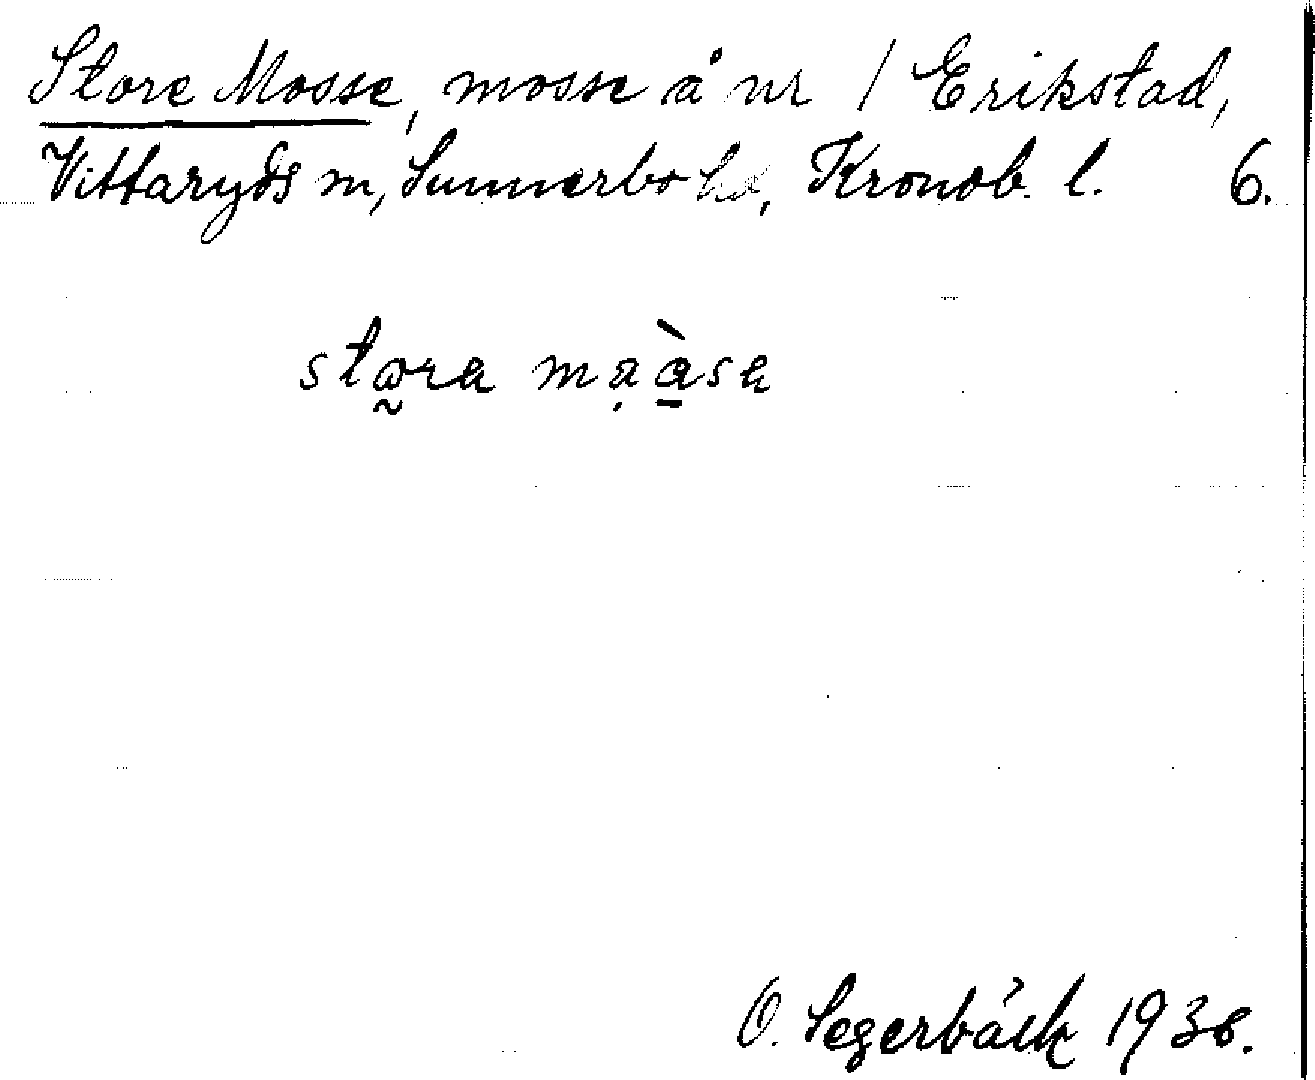 Store Mosse, mosse å nr 1 Erikstad,
Vittaryds sn, Sunnerbo hd, Kronob. l. 6.
O. Segerbäck 1936.